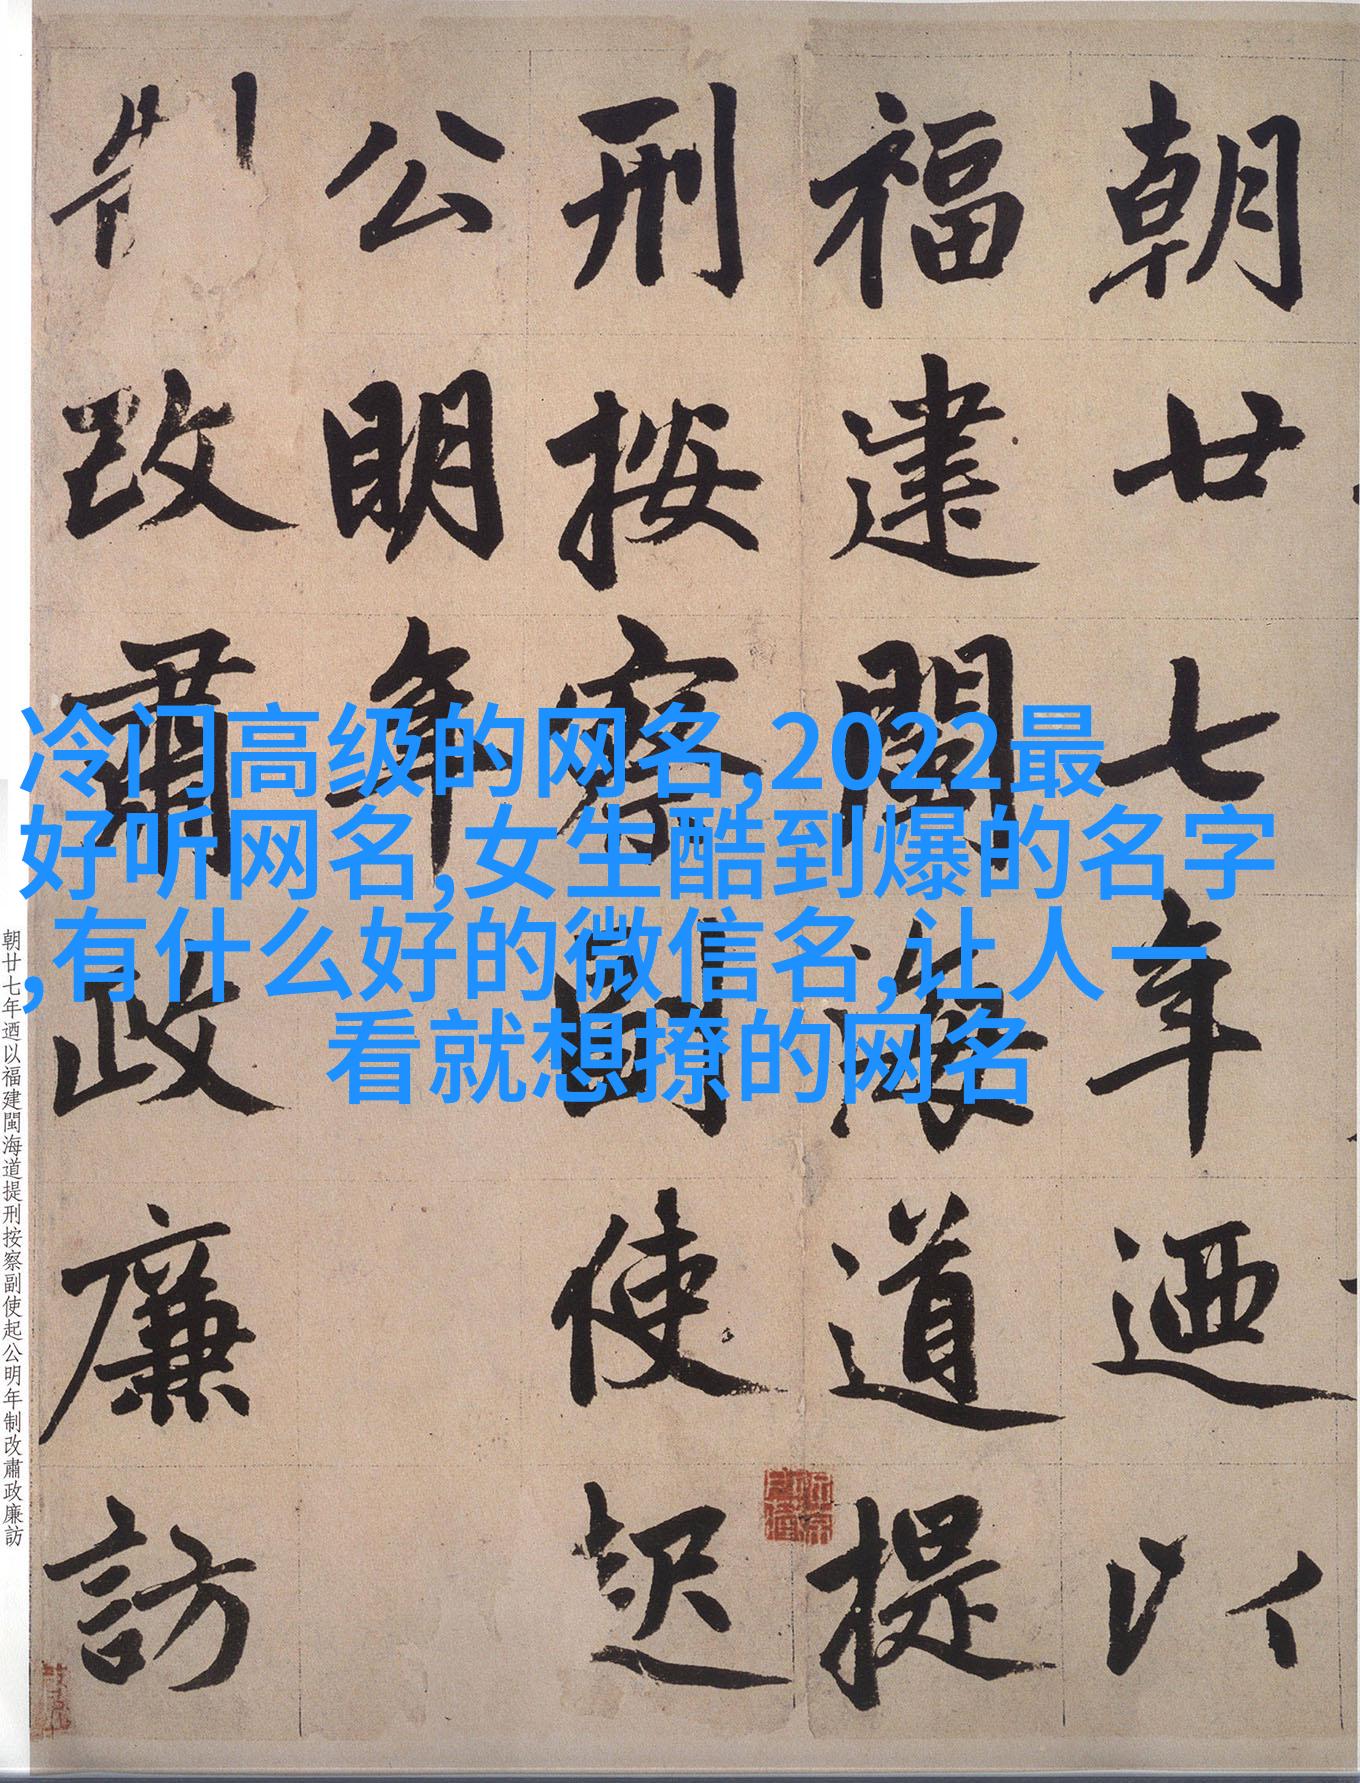 朝廿七年迺以
福建閩海道提
刑按察副使起
公明年
制改肅政廉訪
冷门高级的网名,2022最
好听网名,女生酷到爆的名字
,有什么好的微信名,让人一
看就想撩的网名
朝廿七年迺以福建閩海道提刑按察副使起公明年制改肅政廉訪